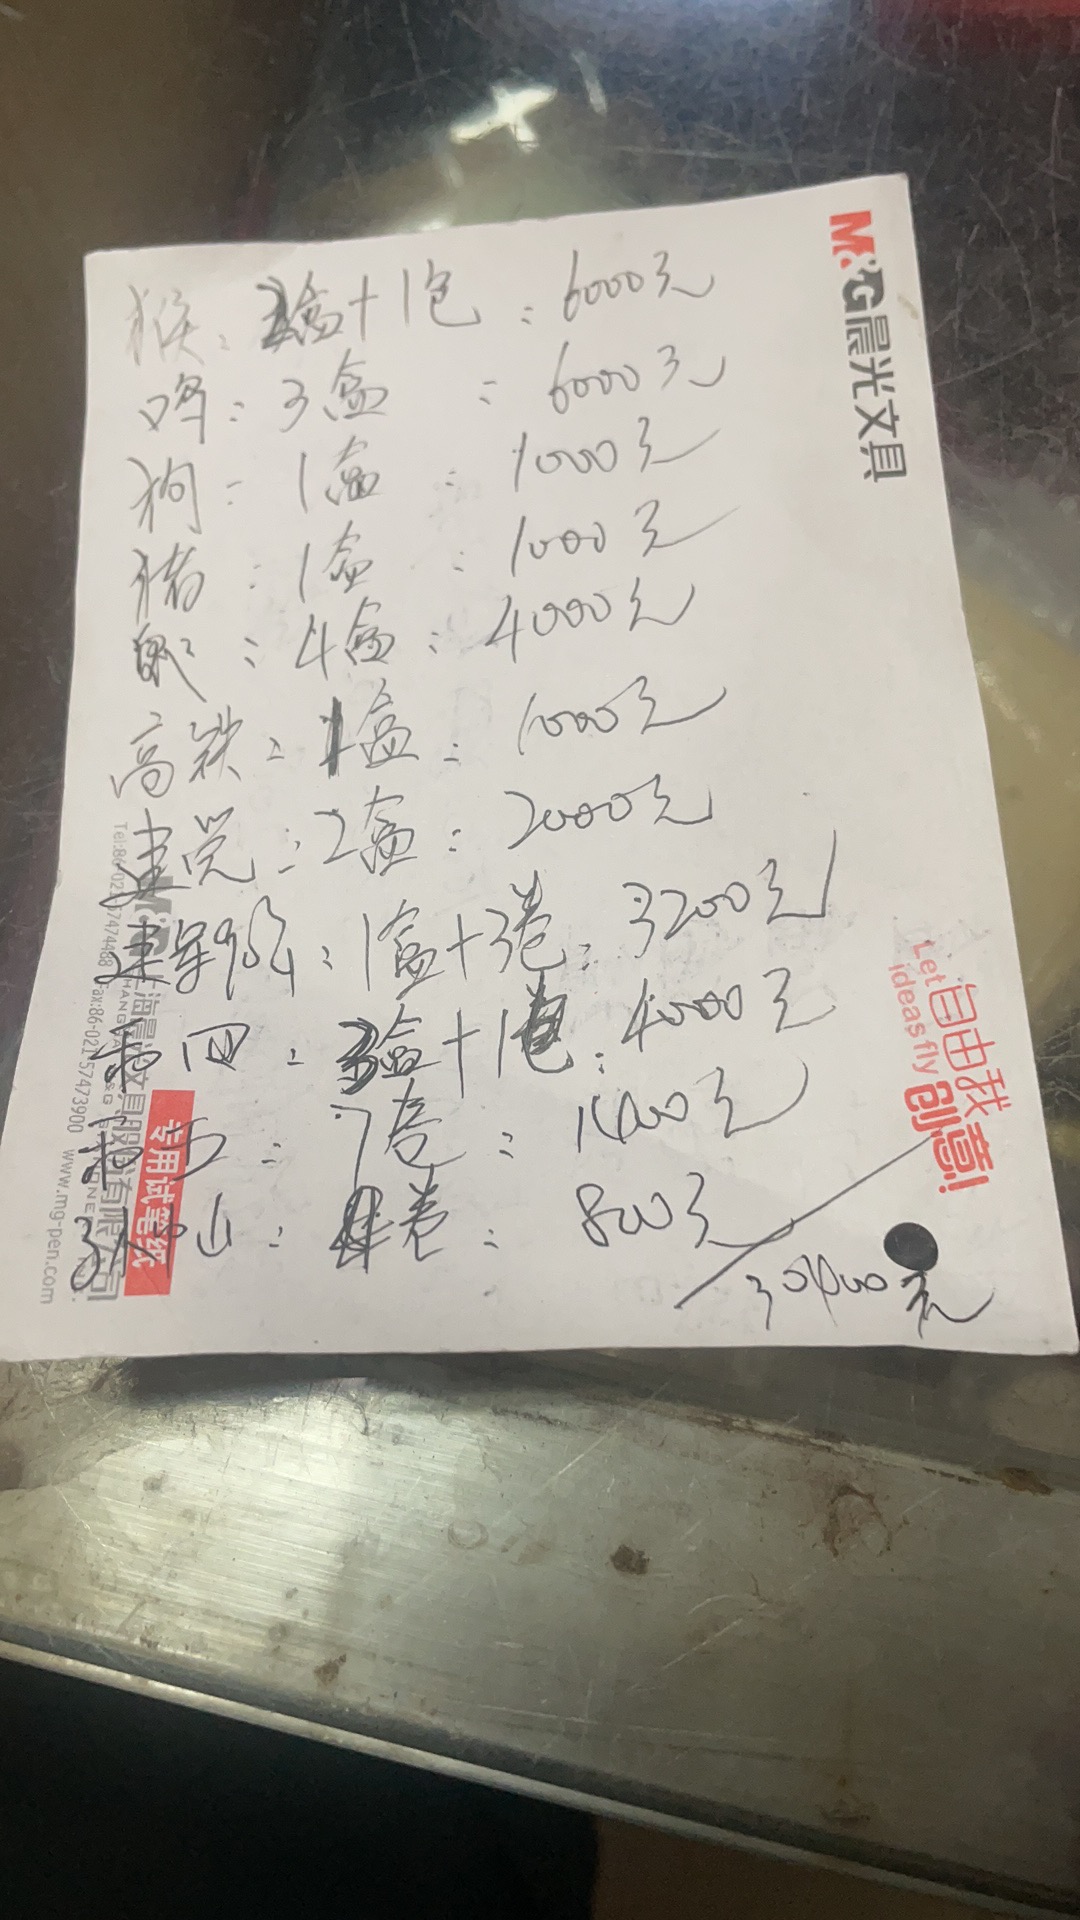 猴：2盒+1包：6000元
峰：3盒：6000元
狗：1盒：1000元
猪：1盒：1000元
鼠：4盒：4000元
高铁：1盒：1000元
建党：2盒：2000元
建：1盒+3卷：3200元
四：3盒+1包：4000元
五：7卷：1400元
孙中山：4卷：800元
30400元
M&G晨光文具
Let
ideas fly
自由我
创意!
上海晨光文具股份有限公司
专用试笔纸
www.mg-pen.com